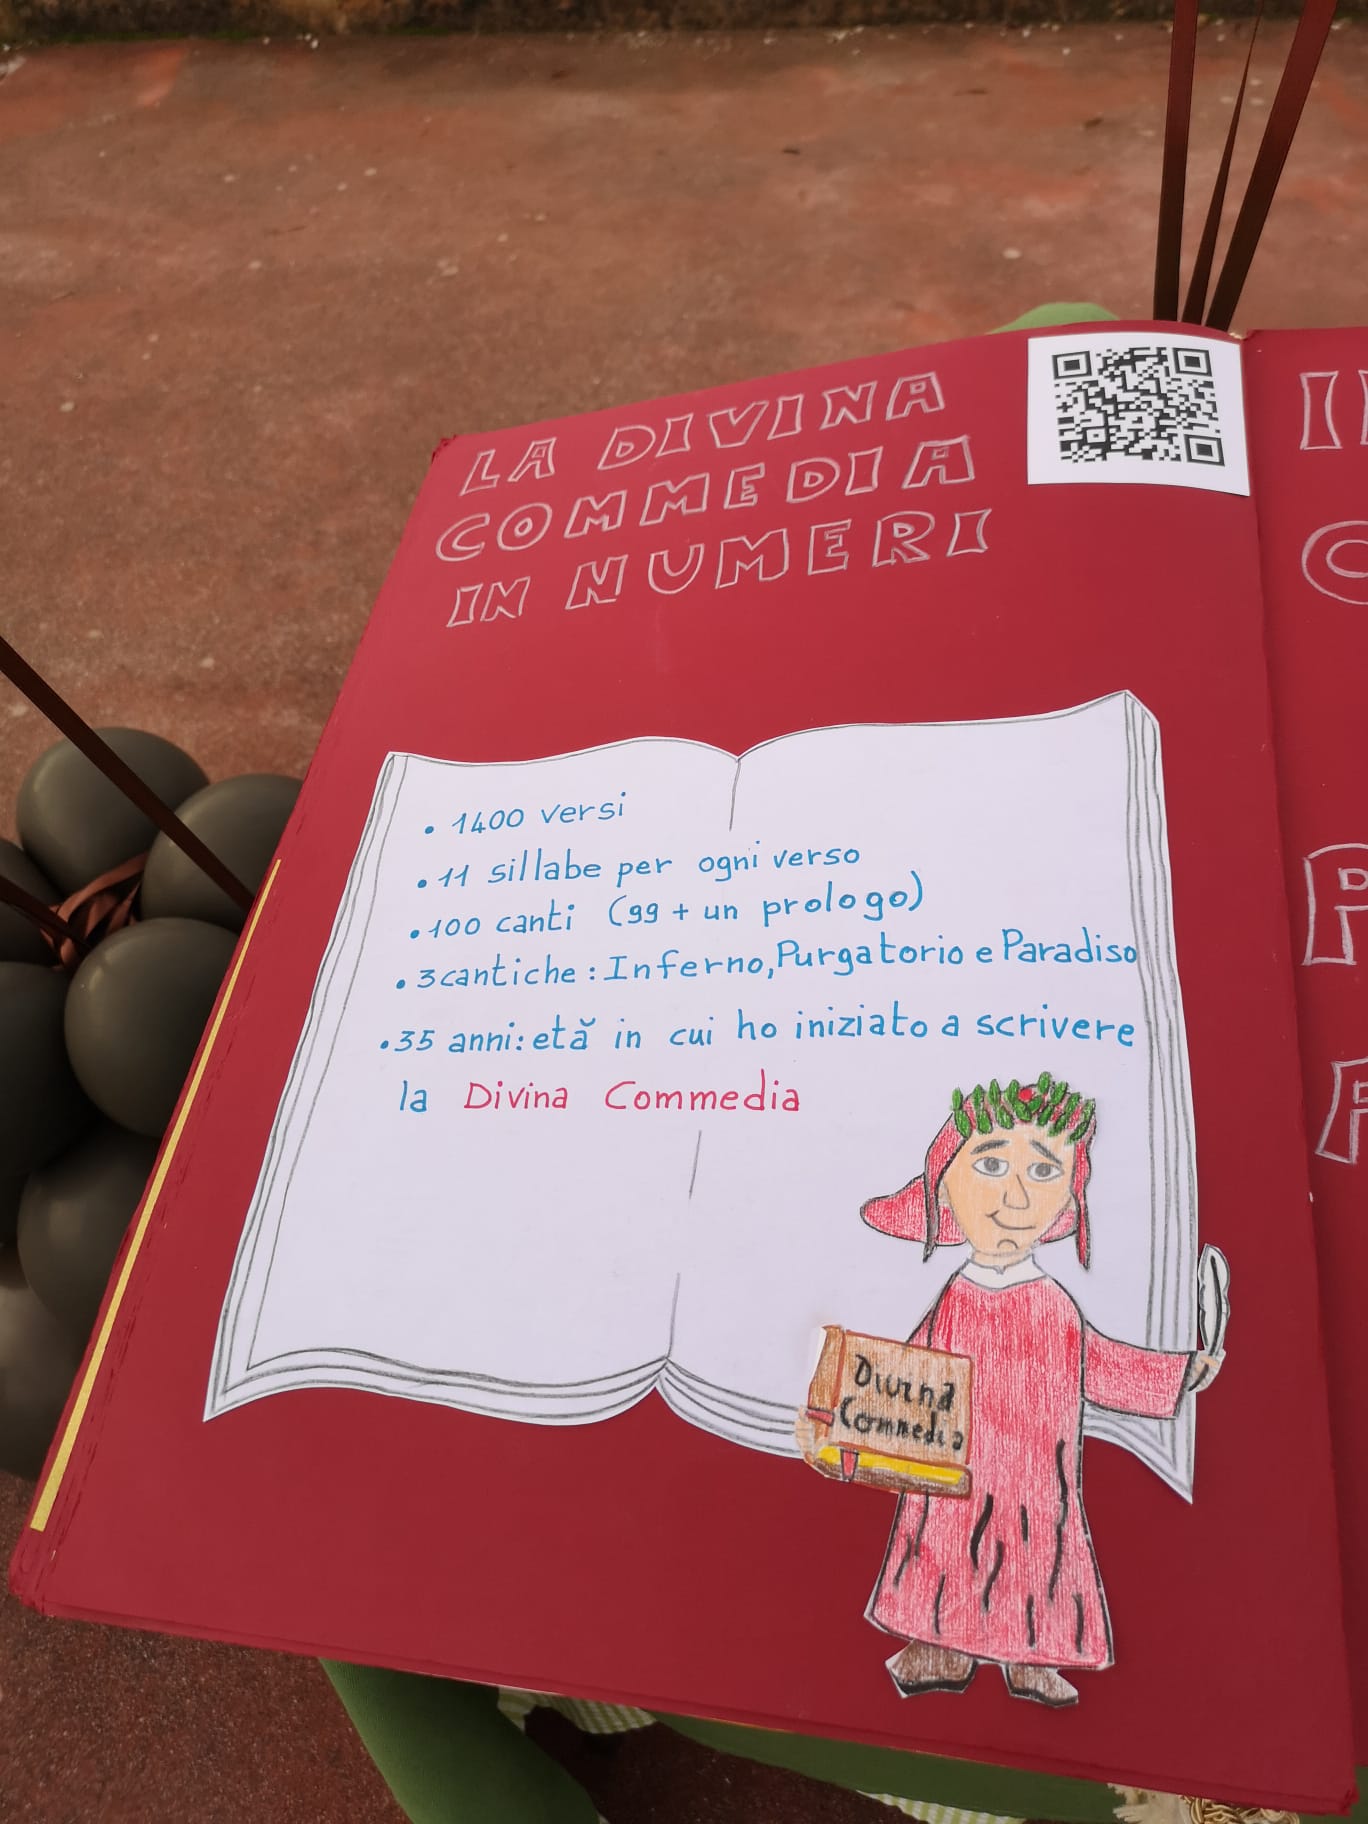 LA DIVINA
COMMEDIA
IN NUMERI
• 1400 versi
• 11 sillabe per ogni verso
• 100 canti (99 + un prologo)
• 3 cantiche: Inferno, Purgatorio e Paradiso
• 35 anni: età in cui ho iniziato a scrivere
la Divina Commedia
Divina
Commedia